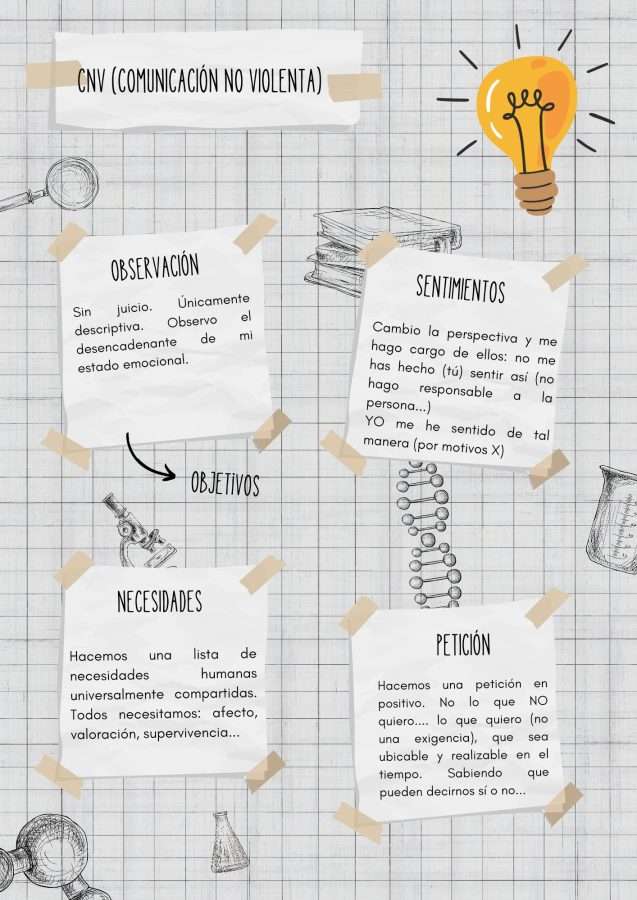 CNV (COMUNICACIÓN NO VIOLENTA)
OBSERVACIÓN
Sin juicio. Únicamente
descriptiva. Observo el
desencadenante de mi
estado emocional.
OBJETIVOS
SENTIMIENTOS
Cambio la perspectiva y me
hago cargo de ellos: no me
has hecho (tú) sentir así (no
hago responsable a la
persona...)
YO me he sentido de tal
manera (por motivos X)
NECESIDADES
Hacemos una lista de
necesidades humanas
universalmente compartidas.
Todos necesitamos: afecto,
valoración, supervivencia...
PETICIÓN
Hacemos una petición en
positivo. No lo que NO
quiero.... lo que quiero (no
una exigencia), que sea
ubicable y realizable en el
tiempo. Sabiendo que
pueden decirnos sí o no...